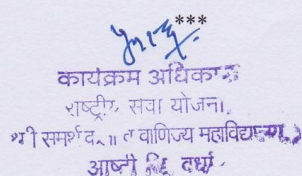 ***
कार्यक्रम अधिकारी
राष्ट्रीय सेवा योजना
श्री समर्थ वाणिज्य महाविद्यालय
आष्टी जि. वर्धा